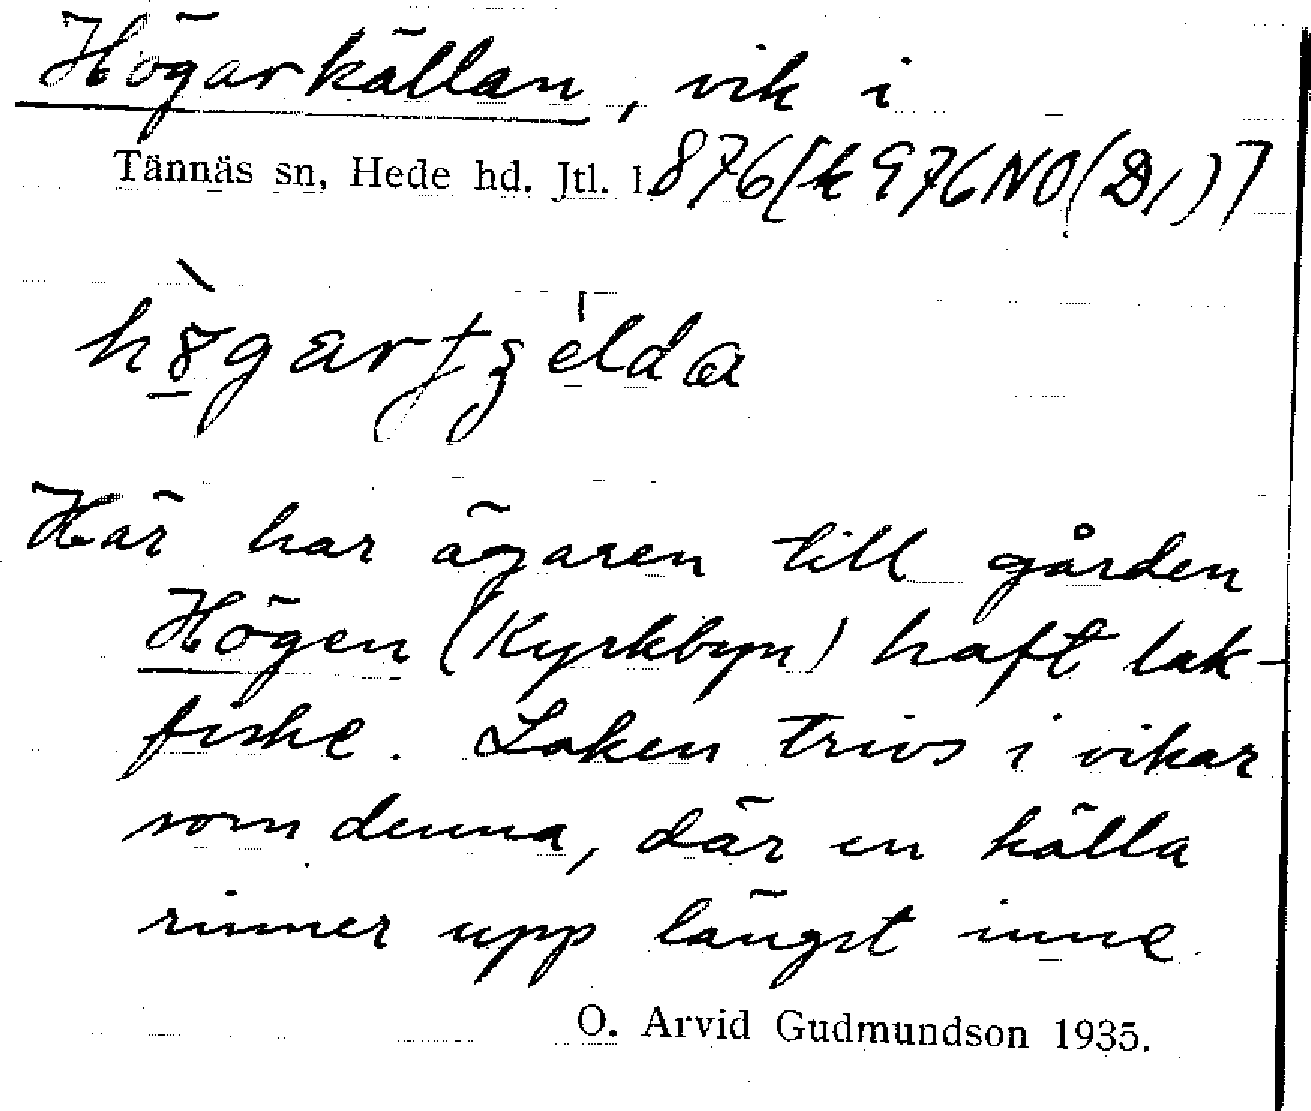 Högarkällan, vik i
Tännäs sn, Hede hd. Jtl. l. 876[k 976NO(D1)]
Här har ägaren till gården
Högen (Kyrkbyn) haft lak-
fiske. Laken trivs i vikar
som denna, där en källa
rinner upp längst inne.
O. Arvid Gudmundson 1935.